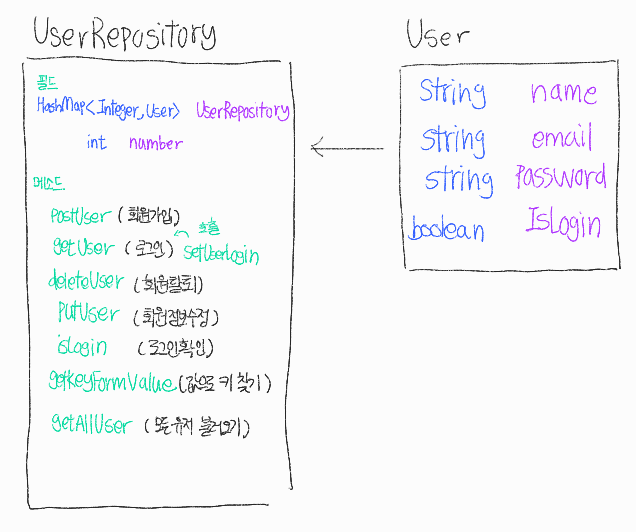 UserRepository
필드
HashMap<Integer,User> UserRepository
int number
메소드
postUser (회원가입)
호출
getUser (로그인) setUserLogin
deleteUser (회원탈퇴)
PutUser (회원정보수정)
isLogin (로그인확인)
getKeyFormValue (값으로 키 찾기)
getAllUser (모든 유저 불러오기)
User
String name
String email
String Password
boolean IsLogin